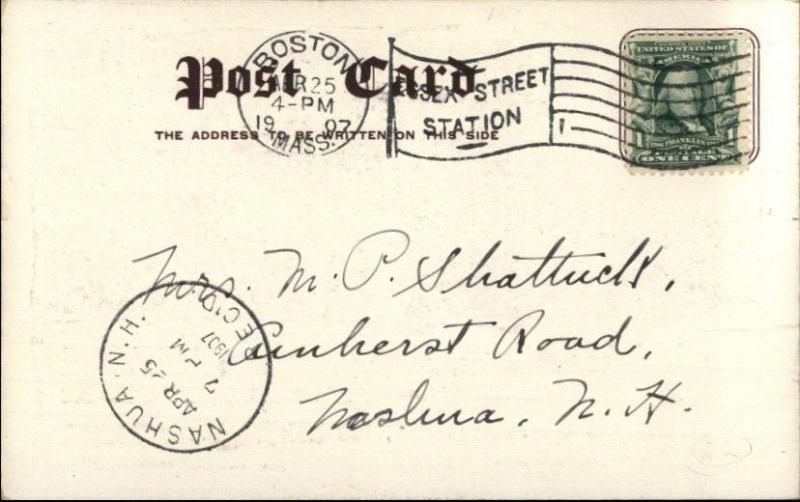 Post Card
THE ADDRESS TO BE WRITTEN ON THIS SIDE
BOSTON
APR 25
4-PM
1907
MASS.
ESSEX STREET
STATION
1
UNITED STATES OF
AMERICA
1 FRANKLIN 1
ONE CENT
Mrs. M. P. Shattuck,
Amherst Road,
Nashua, N. H.
NASHUA N.H.
APR 25
7 PM
1907
REC'D